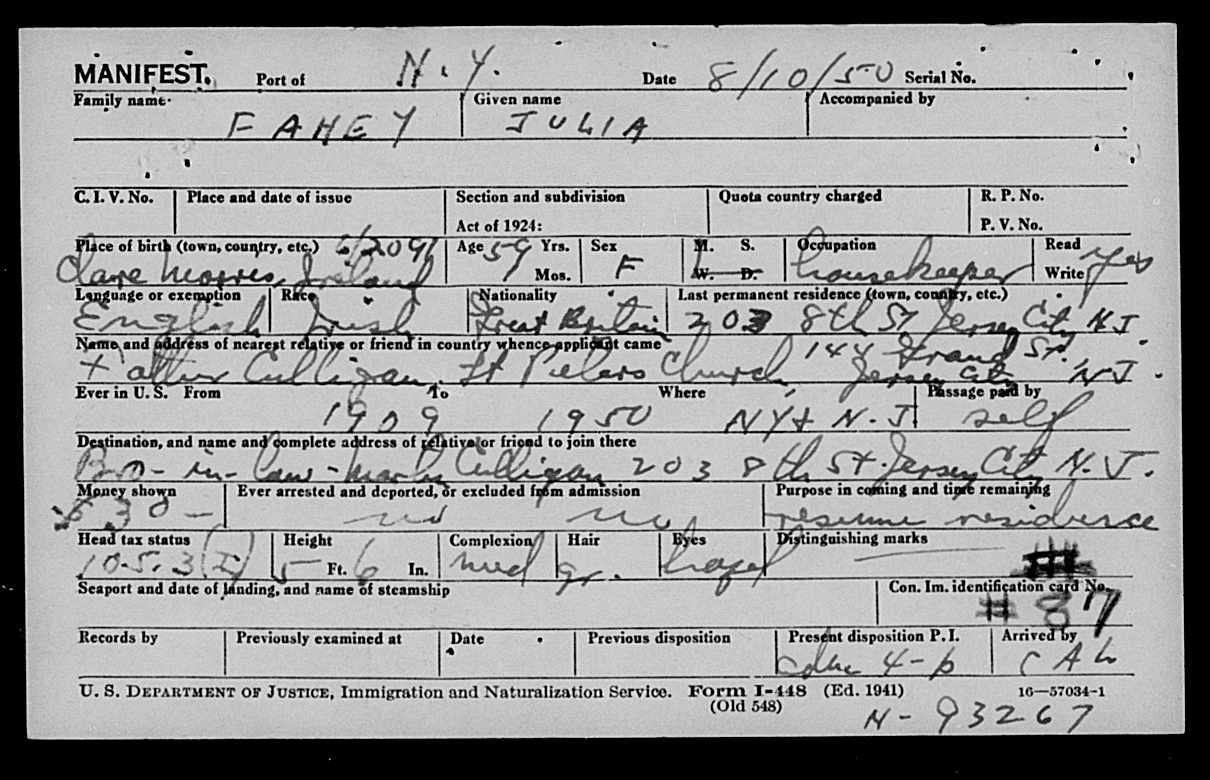 MANIFEST. Port of N.Y. Date 8/10/50 Serial No.
Family name Given name Accompanied by
FAHEY JULIA
C. I. V. No. Place and date of issue Section and subdivision Quota country charged R. P. No.
Act of 1924: P. V. No.
Place of birth (town, country, etc.) Age 59 Yrs. Sex M. S. Occupation Read yes
Clare Morris, Ireland Mos. F W. D. housekeeper Write
Language or exemption Race Nationality Last permanent residence (town, country, etc.)
English Irish Great Britain 203 8th St Jersey City NJ
Name and address of nearest relative or friend in country whence applicant came 144 Grand St.
Culligan, St Church, Jersey City NJ.
Ever in U. S. From To Where Passage paid by
1909 1950 NY & N.J self
Destination, and name and complete address of relative or friend to join there
Bro-in-law- Culligan 203 8th St. Jersey City N.J.
Money shown Ever arrested and deported, or excluded from admission Purpose in coming and time remaining
$30- no no resume residence
Head tax status Height Complexion Hair Eyes Distinguishing marks
10.5.3(I) 5 Ft. 6 In. med gr. hazel
Seaport and date of landing, and name of steamship Con. Im. identification card No.
# 87
Records by Previously examined at Date Previous disposition Present disposition P. I. Arrived by
4-b CAL
U. S. DEPARTMENT OF JUSTICE, Immigration and Naturalization Service. Form I-448 (Ed. 1941) 16—57034-1
(Old 548)
N-93267